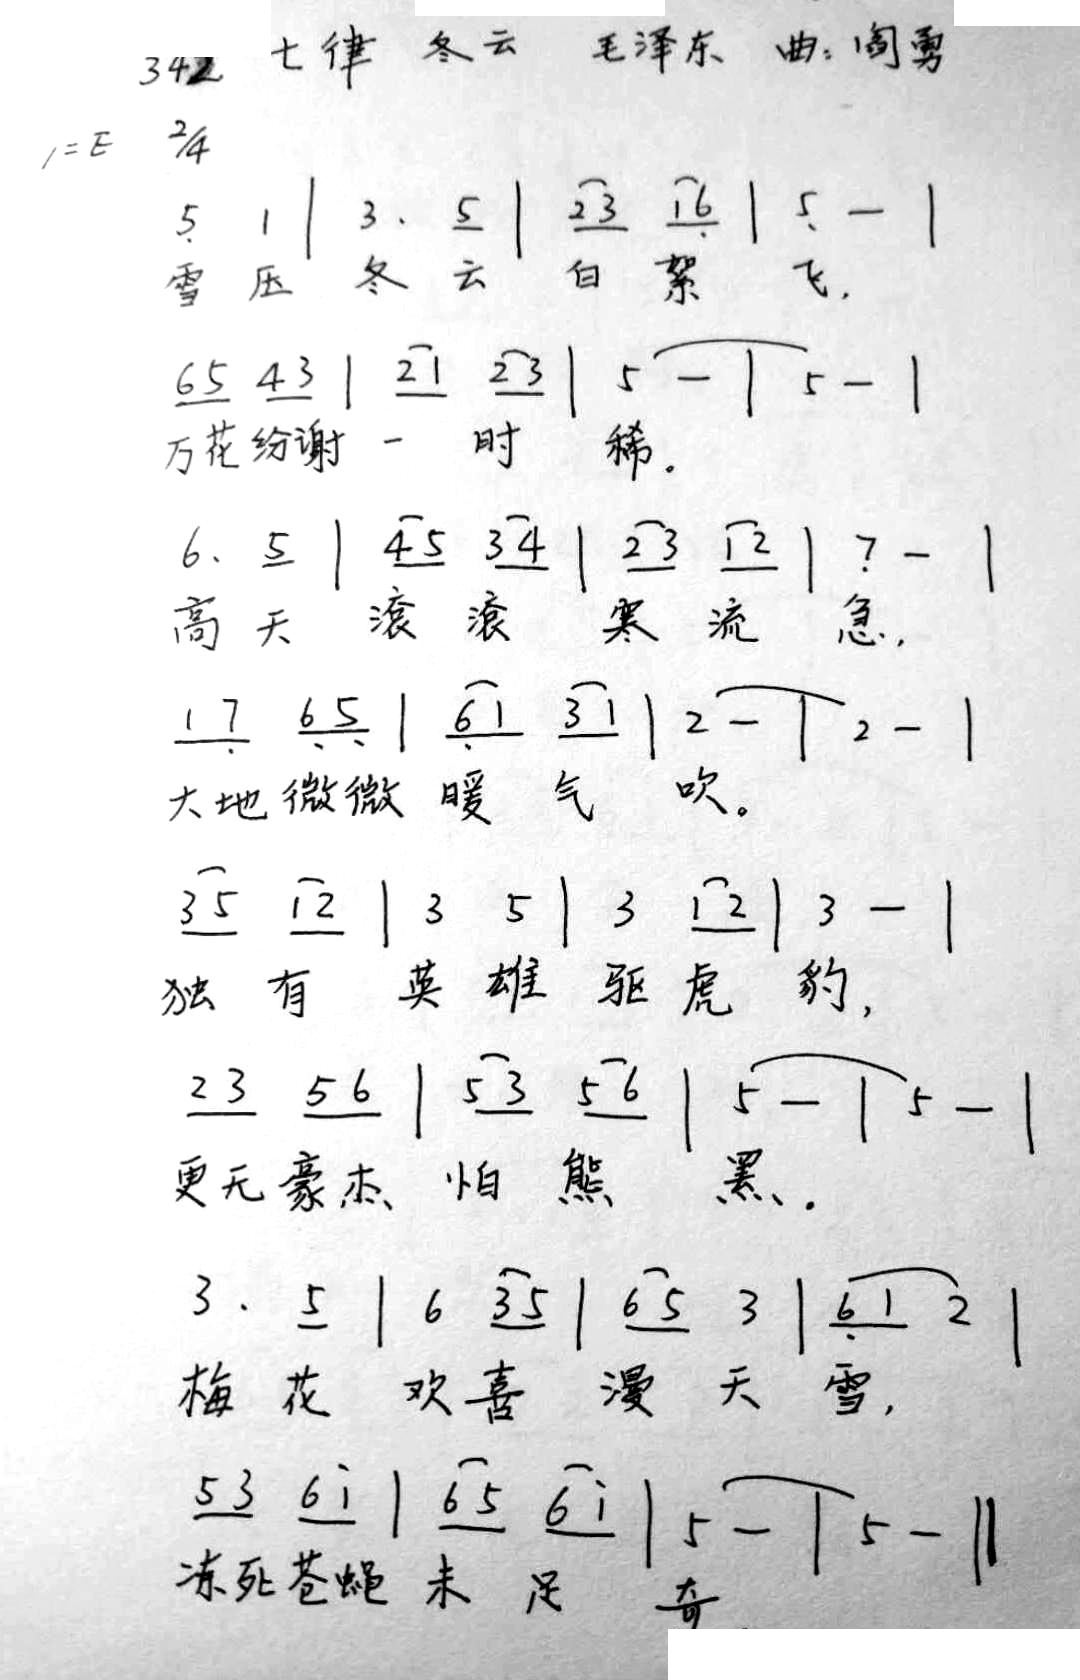 342 七律 冬云 毛泽东 曲：阎勇
1=E 2/4
5̣ 1 | 3. 5 | 23 16̣ | 5̣ — |
雪压冬云白絮飞，
65 43 | 21 23 | 5 — | 5 — |
万花纷谢一时稀。
6. 5 | 45 34 | 23 12 | 7̣ — |
高天滚滚寒流急，
17̣ 6̣5̣ | 6̣1 31 | 2 — | 2 — |
大地微微暖气吹。
35 12 | 3 5 | 3 12 | 3 — |
独有英雄驱虎豹，
23 56 | 53 56 | 5 — | 5 — |
更无豪杰怕熊罴。
3. 5 | 6 35 | 65 3 | 6̣1 2 |
梅花欢喜漫天雪，
53 6i | 65 6i | 5 — | 5 — ‖
冻死苍蝇未足奇